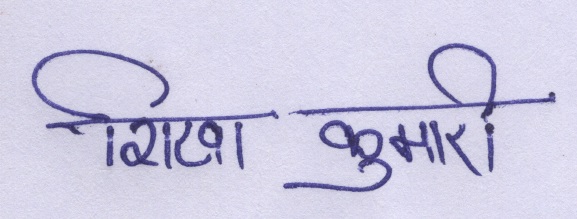 शिखा कुमारी